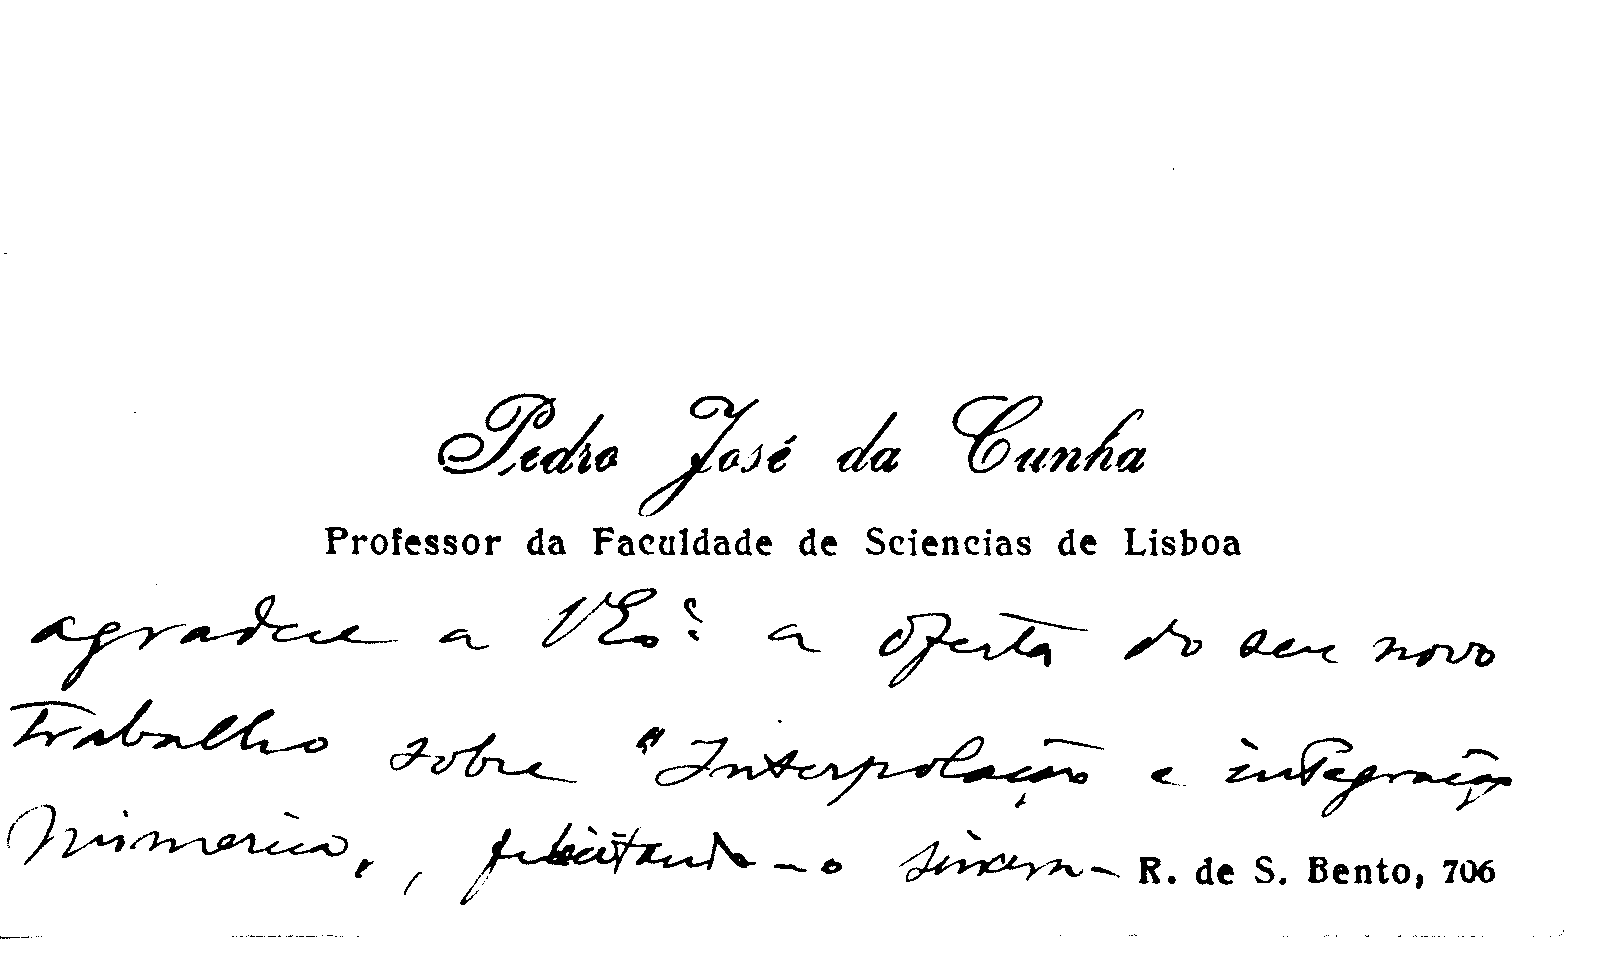 Pedro José da Cunha
Professor da Faculdade de Sciencias de Lisboa
agradece a V Ex.ª a oferta do seu novo
trabalho sobre "Interpolação e integração
numerica", felicitando-o sincera-
R. de S. Bento, 706